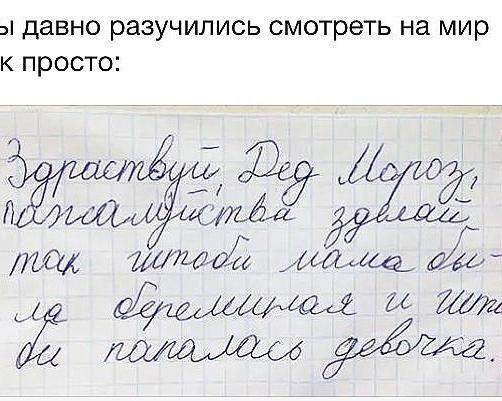 ы давно разучились смотреть на мир
к просто:
Здраствуй, Дед Мороз,
пажалуйства зделай
так штоби мама бы-
ла береминая и што
би папалась девочка.